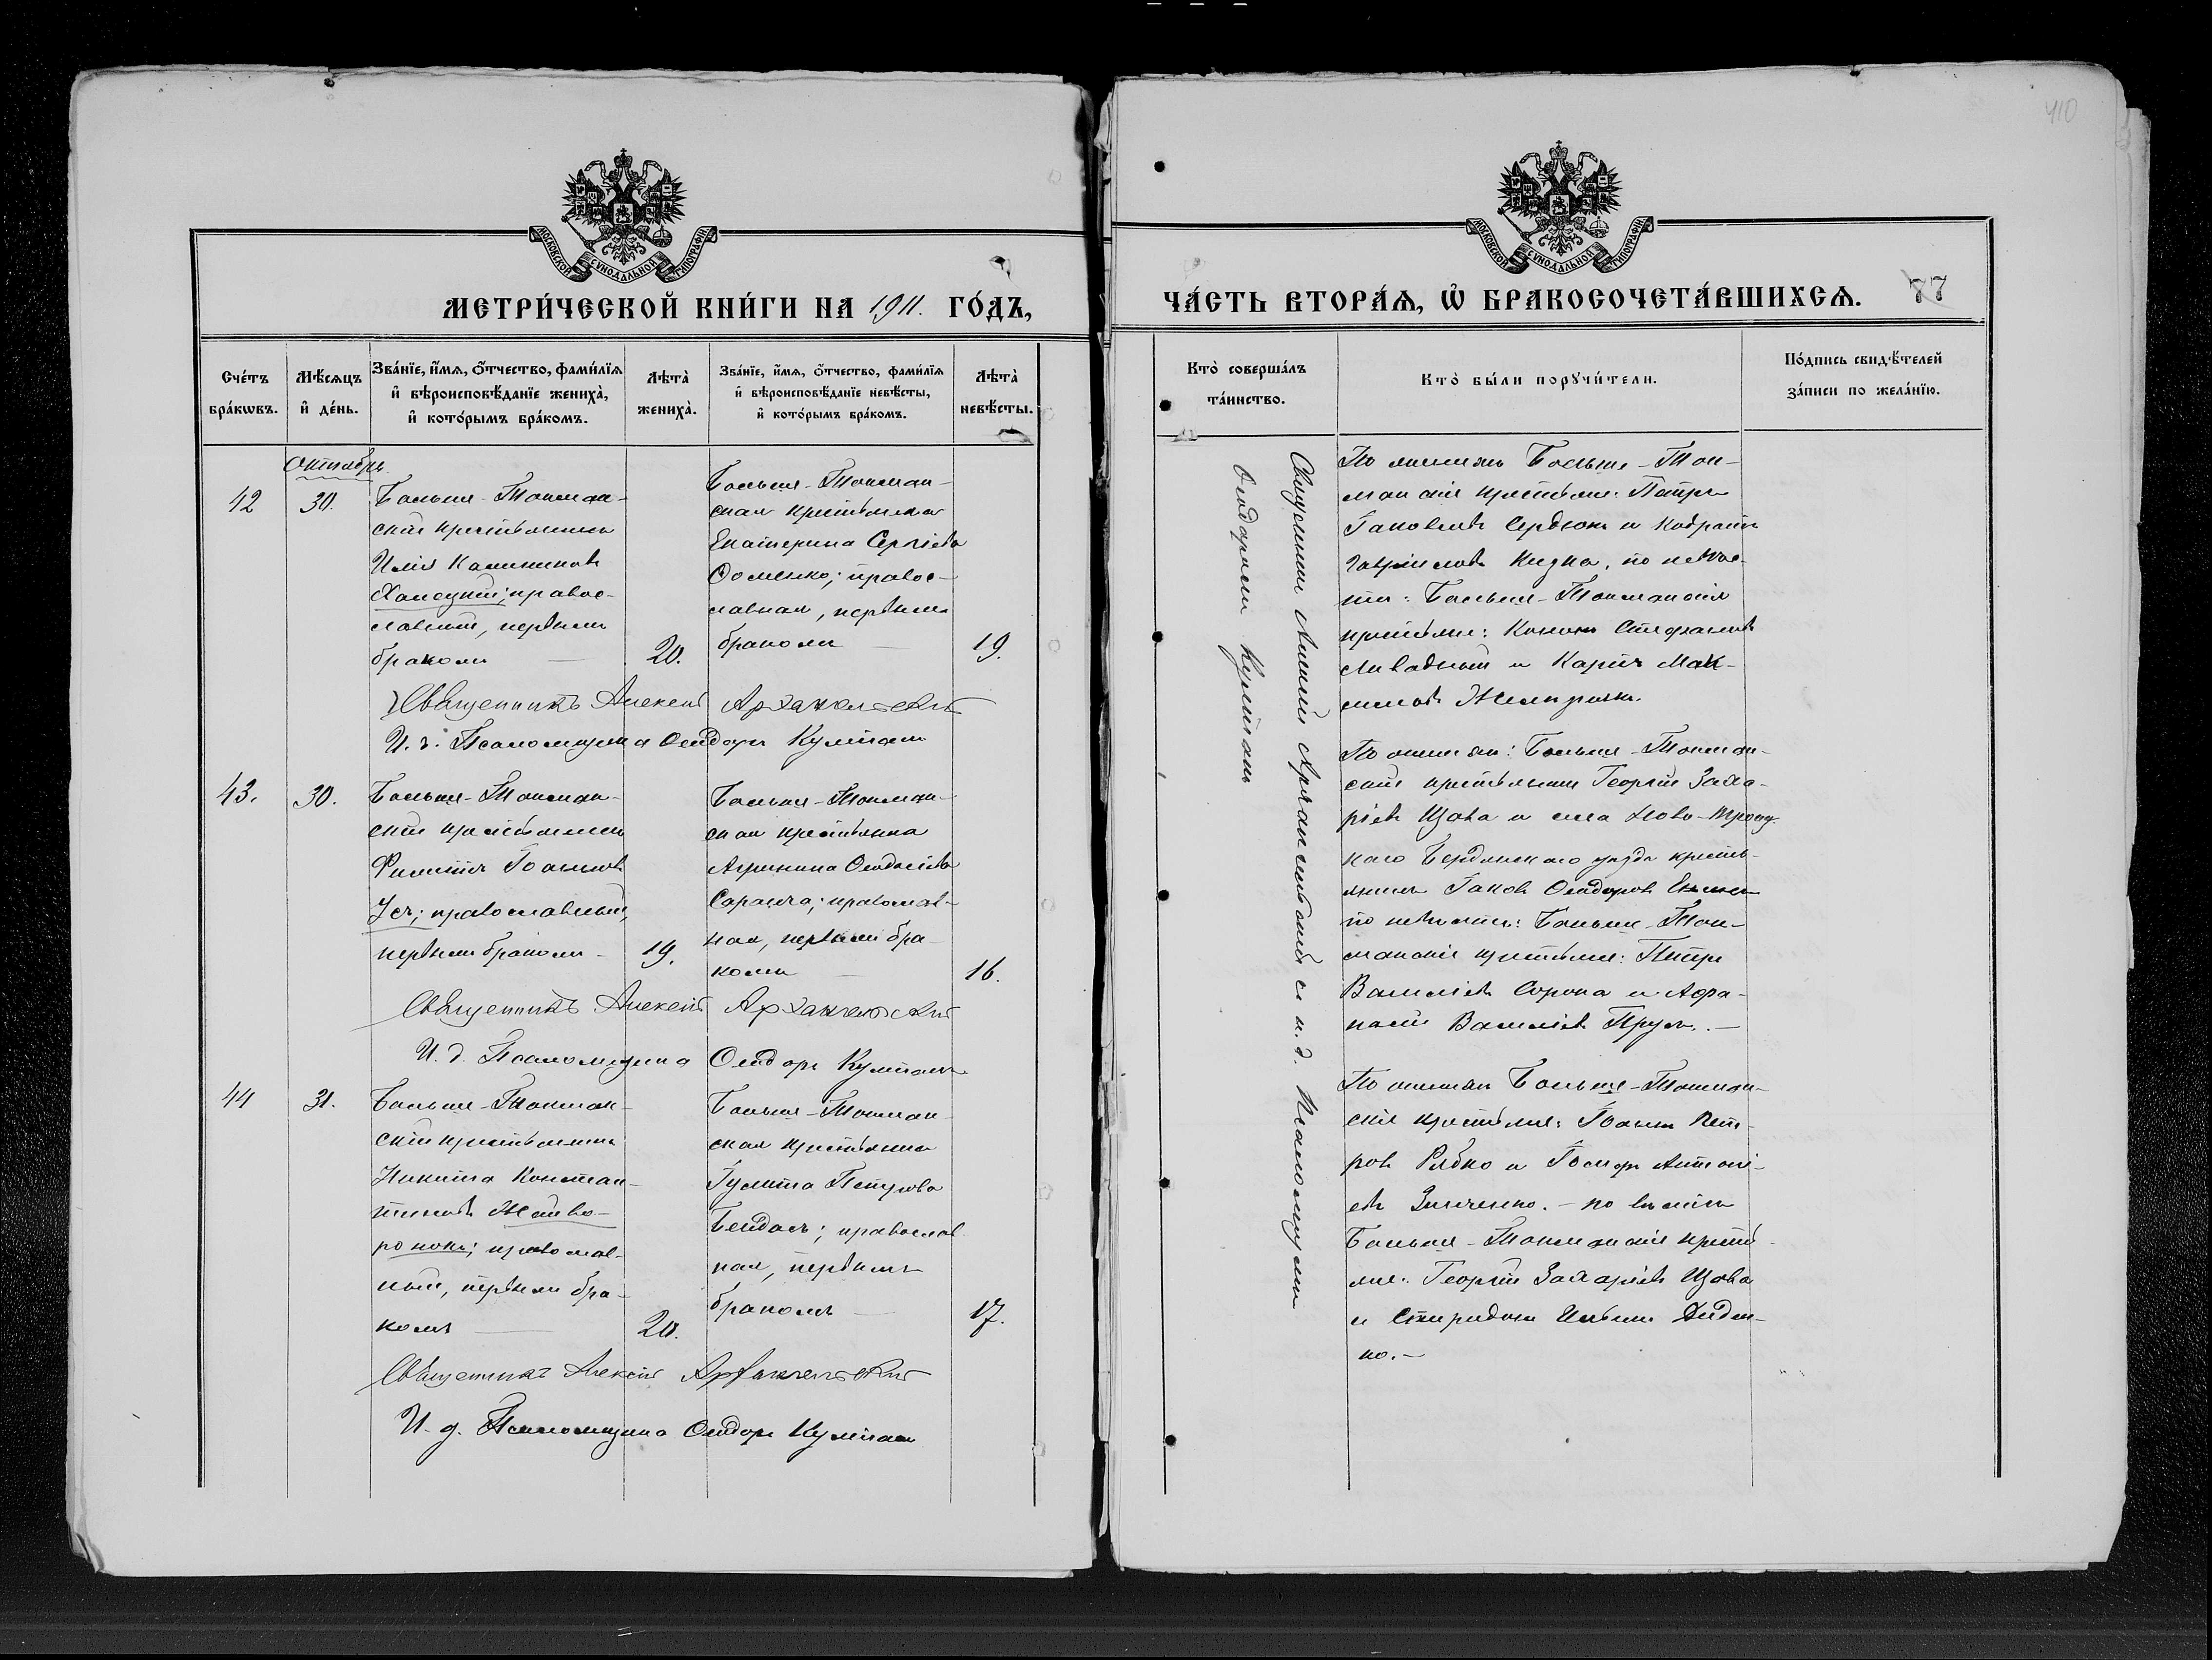 410
МОСКОВСКОЙ СУНОДАЛЬНОЙ ТИПОГРАФИИ
МЕТРИ́ЧЕСКОЙ КНИ́ГИ НА 1911. ГО́ДЪ,
Сче́тъ бра́кѡвъ.
Мѣ́сѧцъ и҆ де́нь.
Зва́нїе, и҆́мѧ, ѻ҆́тчество, фами́лїѧ
и҆ вѣроисповѣ́данїе жениха̀,
и҆ кото́рымъ бра́комъ.
Лѣта̀ жениха̀.
Зва́нїе, и҆́мѧ, ѻ҆́тчество, фами́лїѧ
и҆ вѣроисповѣ́данїе невѣ́сты,
и҆ кото́рымъ бра́комъ.
Лѣта̀ невѣ́сты.
Октябрь
42
30.
Больше-Токмак-
скій крестьянинъ
Илія Калиниковъ
Халецкій; правос-
лавный, первымъ
бракомъ
20.
Больше-Токмак-
ская крестьянка
Екатерина Сергіева
Фоменко; правос-
лавная, первымъ
бракомъ
19.
Священникъ Алексій Архангельскій
И. д. Псаломщика Ѳеодоръ
43.
30.
Больше-Токмак-
скій крестьянинъ
Филиппъ Іоанновъ
Усъ; православный,
первымъ бракомъ
19.
Больше-Токмак-
ская крестьянка
Агрипина Ѳеодосіева
православ-
ная, первымъ бра-
комъ
16.
Священникъ Алексій Архангельскій
И. д. Псаломщика Ѳеодоръ
44
31.
Больше-Токмак-
скій крестьянинъ
Никита Констан-
тиновъ Жайво-
ронокъ; православ-
ный, первымъ бра-
комъ
20.
Больше-Токмак-
ская крестьянка
Іулитта Петрова
Бендасъ; православ
ная, первымъ
бракомъ
17.
Священникъ Алексій Архангельскій
И. д. Псаломщика Ѳеодоръ
МОСКОВСКОЙ СУНОДАЛЬНОЙ ТИПОГРАФИИ
ЧА́СТЬ ВТОРА́Ѧ, Ѡ҆ БРАКОСОЧЕТА́ВШИХСѦ.
77
Кто̀ соверша́лъ
та́инство.
Кто̀ бы́ли порꙋчи́тели.
По́дпись свидѣ́телей
за́писи по жела́нїю.
Священникъ Алексій Архангельскій и и. д. Псаломщика
Ѳеодоръ
По женихѣ Больше-Ток-
макскіе крестьяне: Петръ
Іаковлевъ Сердюкъ и Кодратъ
Гавріиловъ по невѣс-
тѣ: Больше-Токмакскіе
крестьяне: Кононъ Стефановъ
Ливадный и Карпъ Мак-
симовъ
По женихѣ: Больше-Токмак-
скій крестьянинъ Георгій Заха-
ріевъ Щова и села Ново-Троиц-
каго Бердянскаго уѣзда кресть-
янинъ Іаковъ Ѳеодоровъ
по невѣстѣ: Больше-Ток-
макскіе крестьяне: Петръ
Василіевъ Сорока и Афа-
насій Василіевъ Прусъ. —
По женихѣ Больше-Токмак-
скіе крестьяне: Іоаннъ Пет-
ровъ Рябко и Іосифъ Антоні-
евъ Зинченко. — по невѣстѣ
Больше-Токмакскіе кресть-
яне: Георгій Захаріевъ Щова
и Спиридонъ Ильинъ Диден-
ко. —